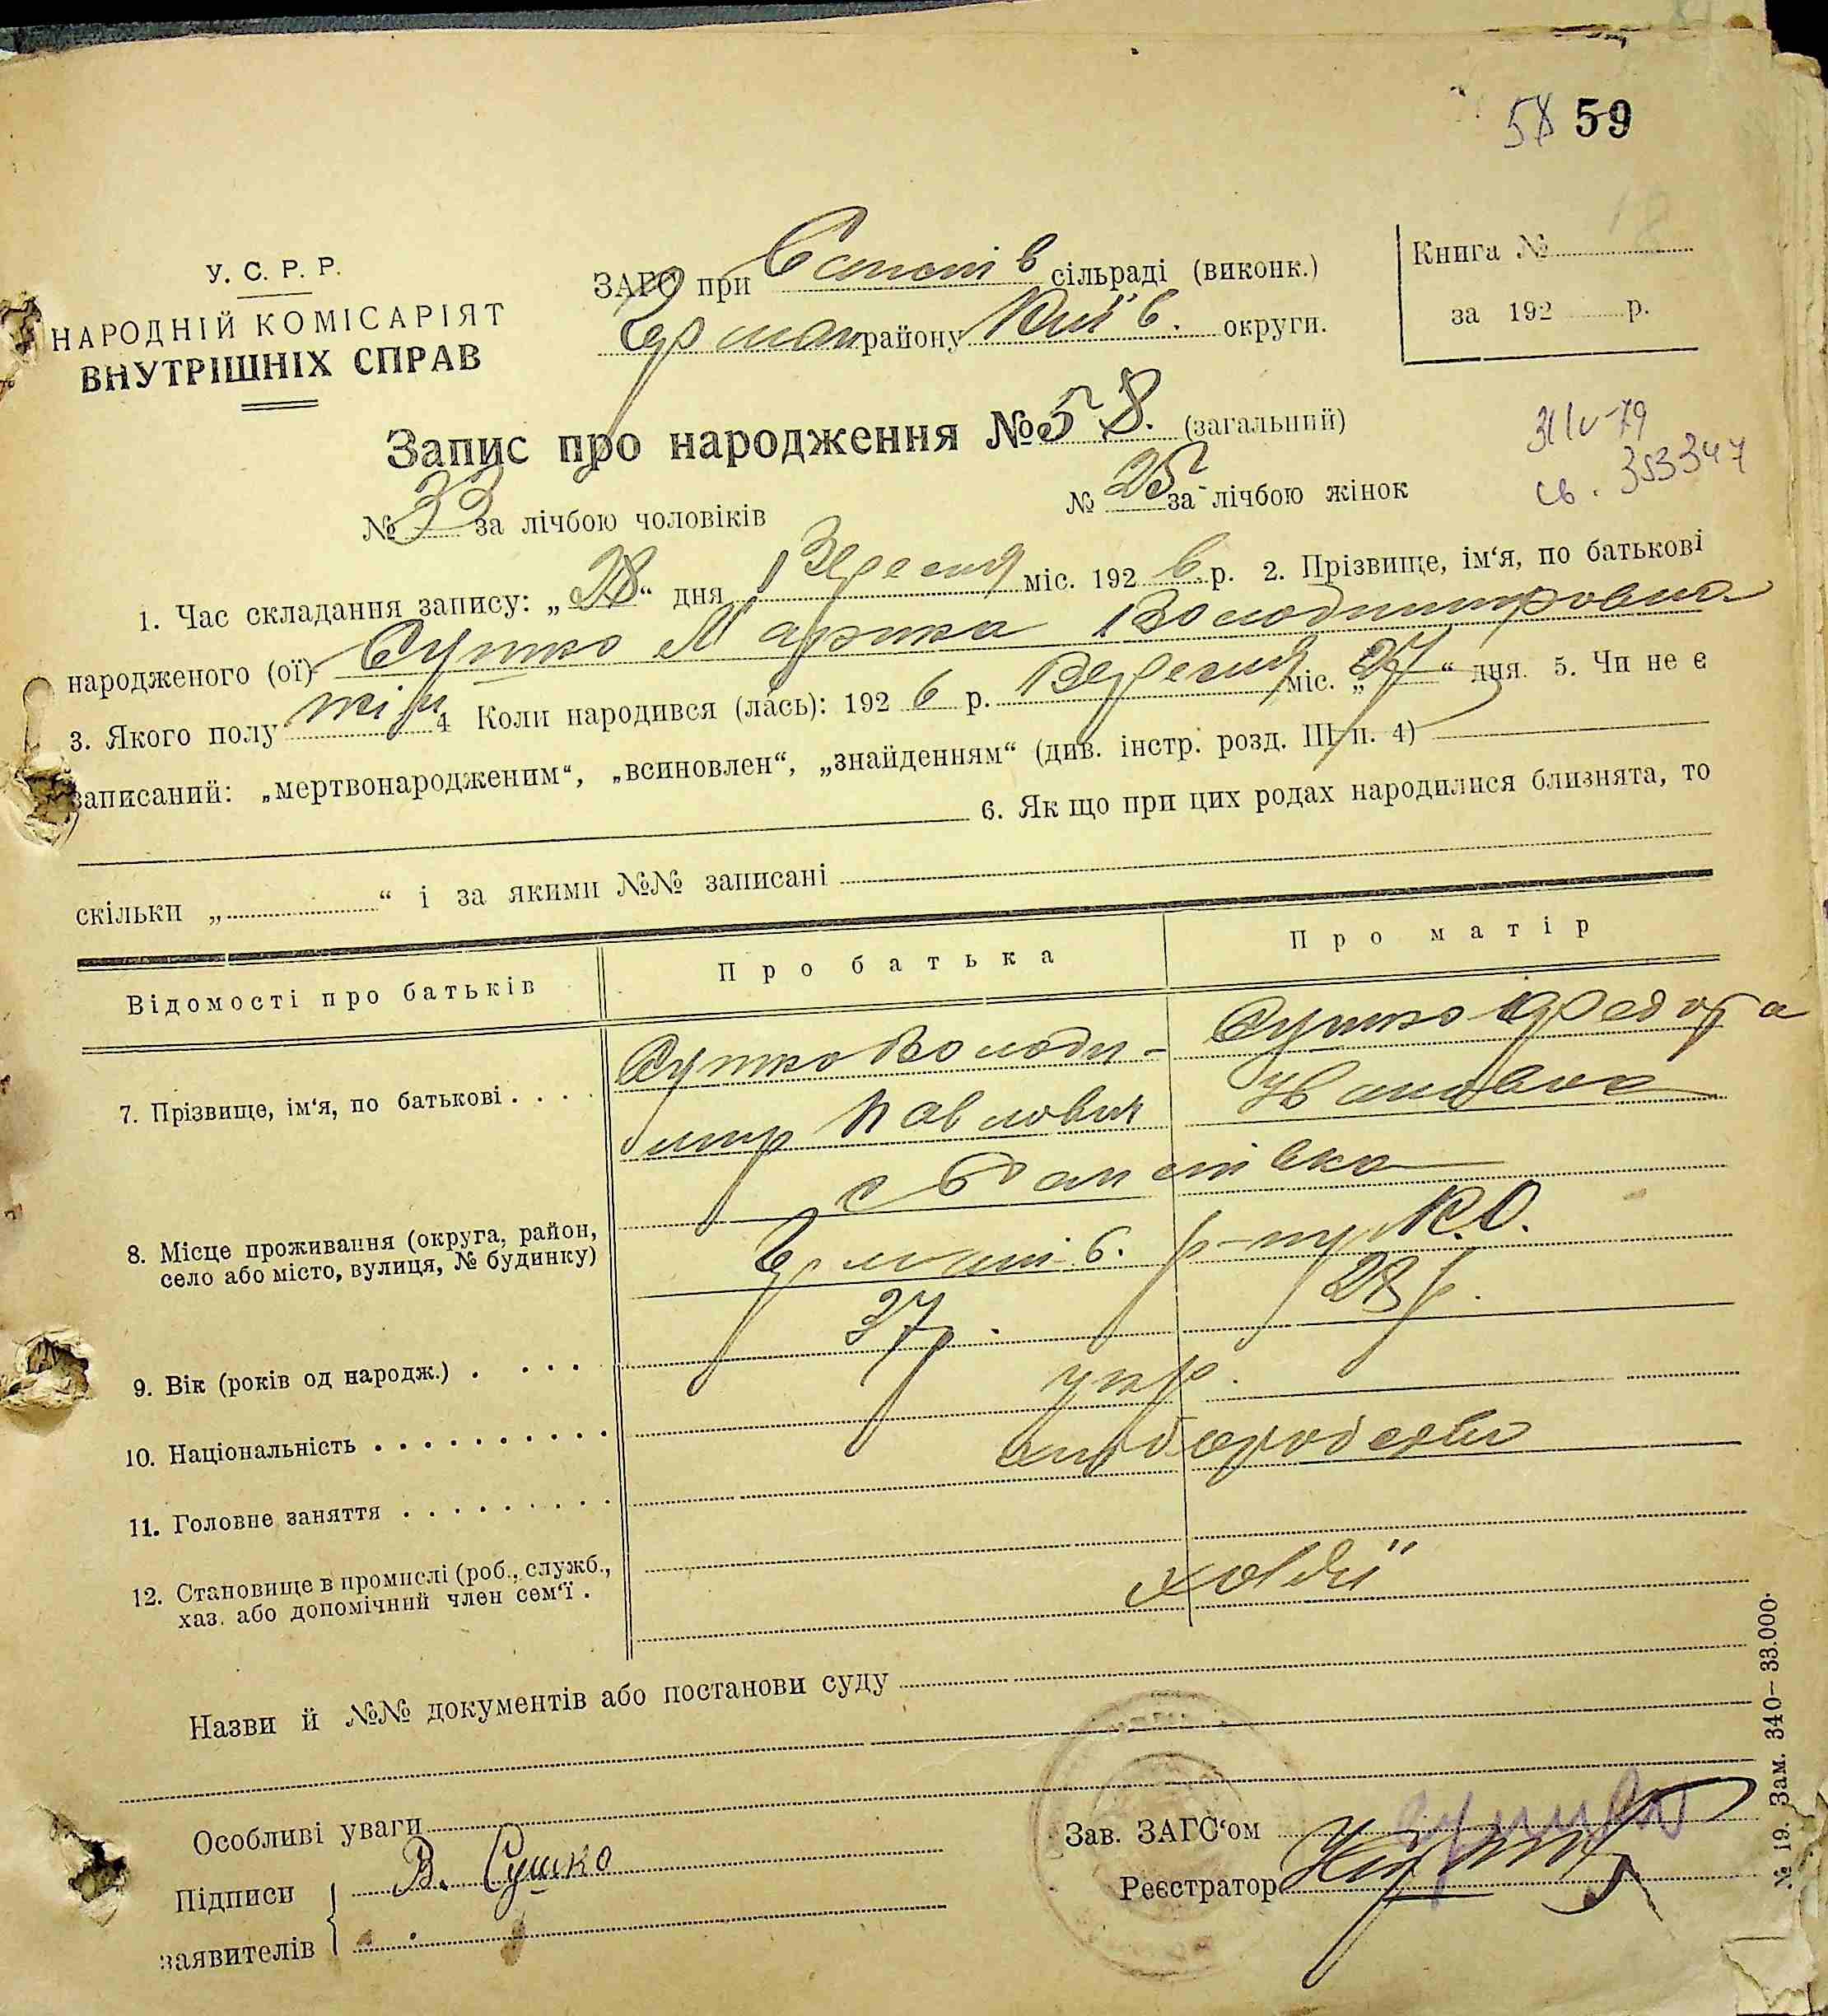 58 59
У. С. Р. Р.
НАРОДНІЙ КОМІСАРІЯТ
ВНУТРІШНІХ СПРАВ
ЗАГС при сільраді (виконк.)
району Київ. округи.
Книга №
за 192 р.
Запис про народження № 58. (загальний)
№ 33 за лічбою чоловіків
№ 25 за лічбою жінок
31/V-79
св. 353347
1. Час складання запису: „28“ дня Вересня міс. 192 6 р. 2. Прізвище, ім‘я, по батькові
народженого (ої) Сушко Марика Володимировна
3. Якого полу жін 4 Коли народився (лась): 192 6 р. Вересня міс. „27“ дня. 5. Чи не є
записаний: „мертвонародженим“, „всиновлен“, „знайденням“ (див. інстр. розд. III п. 4)
6. Як що при цих родах народилися близнята, то
скільки „ “ і за якими №№ записані
Відомості про батьків
Про батька
Про матір
7. Прізвище, ім‘я, по батькові . . . .
Сушко Володи-
мир Павлович
Сушко Федора
Ивановна
8. Місце проживання (округа, район,
село або місто, вулиця, № будинку)
с
р-ну К.О.
9. Вік (років од народж.) . . . .
37 р.
28 р.
10. Національність . . . . . . . . . .
укр.
11. Головне заняття . . . . . . . . .
хлібороб
12. Становище в промислі (роб., служб.,
хаз. або допомічний член сем‘ї .
Назви й №№ документів або постанови суду
Особливі уваги
Підписи
заявителів
В. Сушко
Зав. ЗАГС‘ом
Реєстратор
№ 19. Зам. 340—33.000.